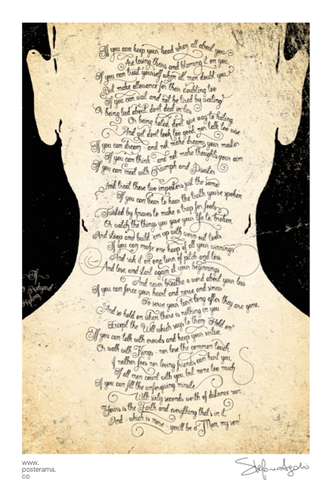 If you can keep your head when all about you
Are losing theirs and blaming it on you,
If you can trust yourself when all men doubt you,
But make allowance for their doubting too
If you can wait and not be tired by waiting
Or being lied about, don't deal in lies,
Or being hated, don't give way to hating,
And yet don't look too good, nor talk too wise
If you can dream - and not make dreams your master
If you can think - and not make thoughts your aim
If you can meet with Triumph and Disaster
And treat those two impostors just the same
If you can bear to hear the truth you've spoken
Twisted by knaves to make a trap for fools
Or watch the things you gave your life to, broken,
And stoop and build 'em up with worn out tools
If you can make one heap of all your winnings
And risk it on one turn of pitch and toss
And lose and start again at your beginnings
And never breathe a word about your loss
If you can force your heart and nerve and sinew
To serve your turn long after they are gone,
And so hold on when there is nothing in you
Except the Will which says to them Hold on!
If you can talk with crowds and keep your virtue,
Or walk with Kings - nor lose the common touch,
If neither foes nor loving friends can hurt you,
If all men count with you, but none too much
If you can fill the unforgiving minute
With sixty seconds worth of distance run,
Yours is the Earth and everything that's in it,
And - which is more - you'll be a Man, my son!
If
Rudyard
Kipling
www.
posterama.
co